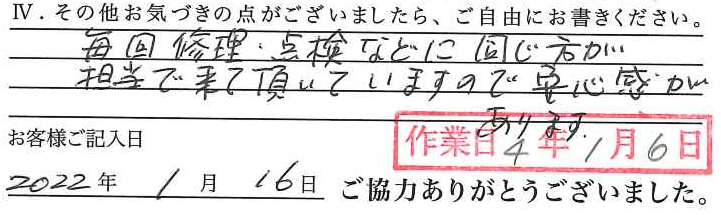 Ⅳ．その他お気づきの点がございましたら、ご自由にお書きください。
毎回修理・点検などに同じ方が
担当で来て頂いていますので安心感が
あります.
お客様ご記入日
作業日 4年 1月 6日
2022年 1月 16日 ご協力ありがとうございました。